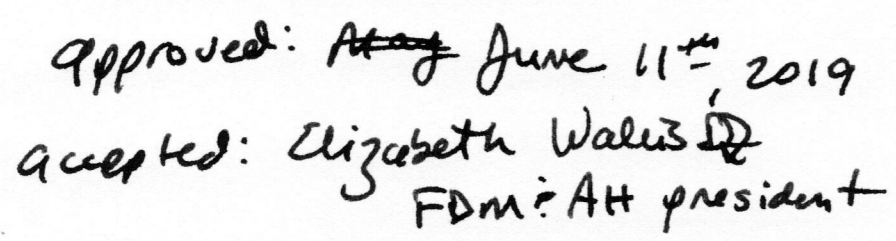 approved: May June 11th, 2019
accepted: Elizabeth Wallis
FDM & AH president